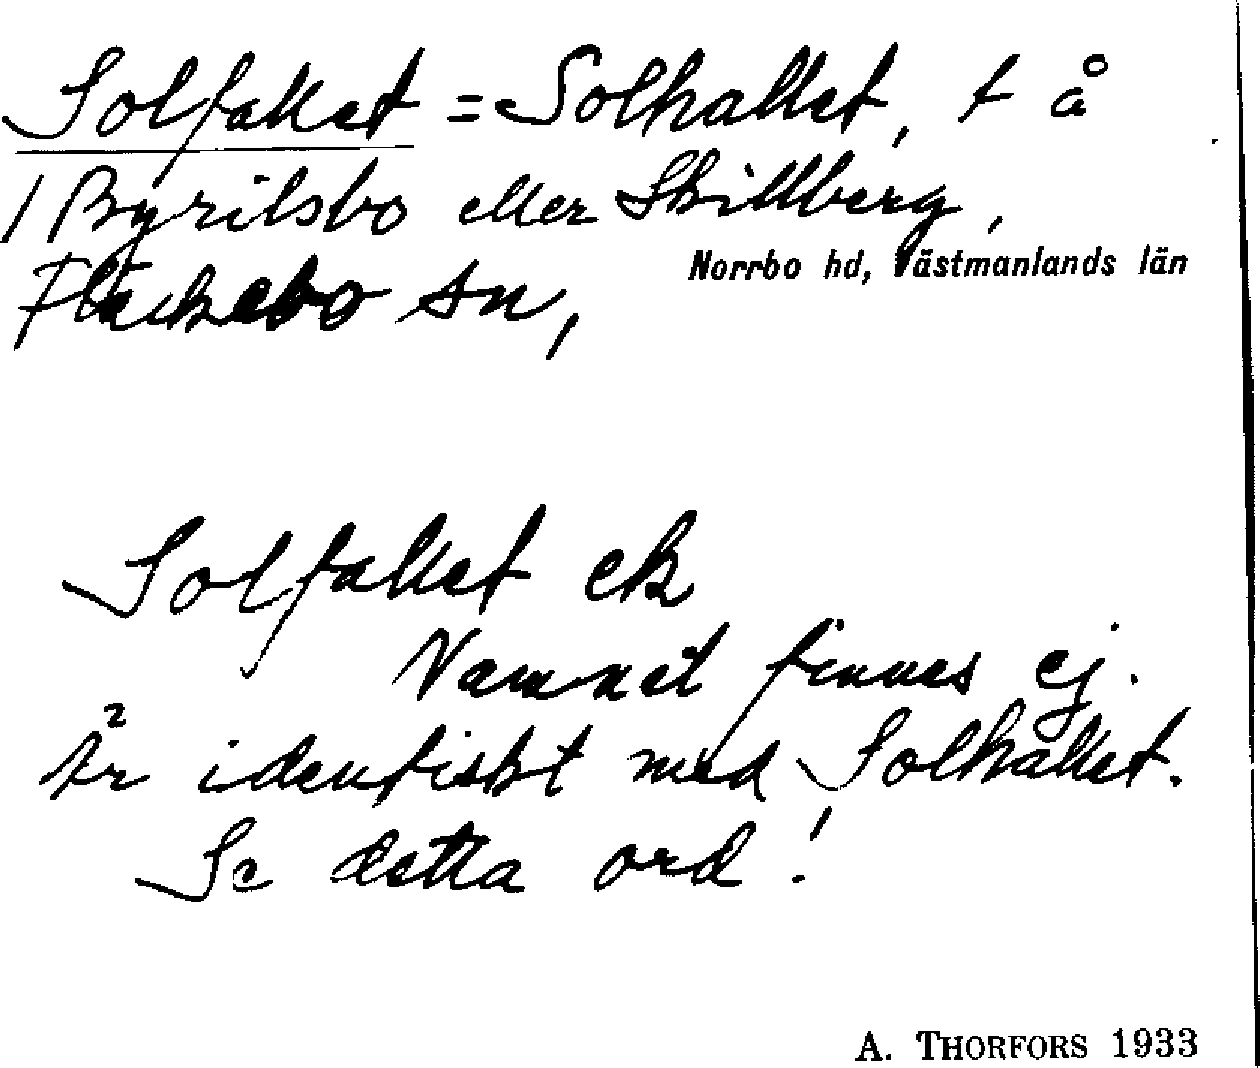 Solfallet = Solhallet, t å
1 Byrilsbo eller Skillberg,
Norrbo hd, Västmanlands län
Fläckebo sn,
Solfallet ek
Namnet finnes ej.
Är identiskt med Solhallet.
Se detta ord!
A. THORFORS 1933